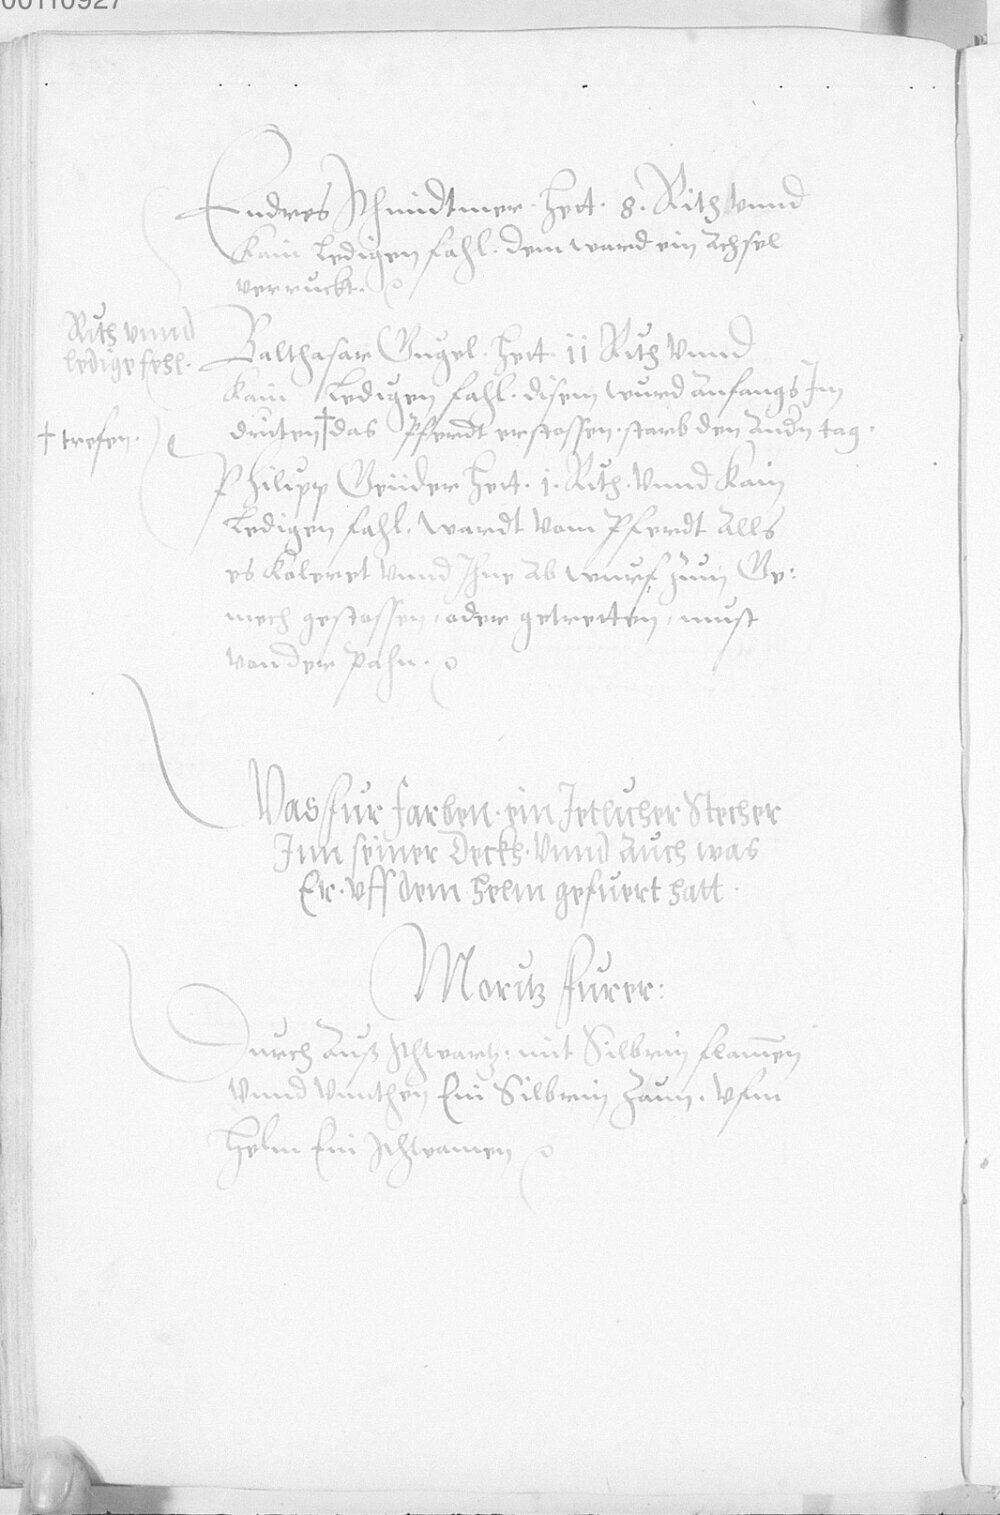 00110927
Endres Schmidtmer. hett. 8. Rith vnnd
Kain Ledigen fahl. dem ward ein Achsel
verruckt.
Rith vnnd
ledige fehl.
Balthasar Gugel. hett. 11 Rith vnnd
Kain Ledigen fahl. disem wurd anfangs Im
driten † das Pferdt erstossen. starb den Andn tag.
† trefen.
Philipp Geüder hett. 1. Rith. vnnd Kain
Ledigen fahl. wardt vom Pferdt Alls
es Koleret vnnd Ihne Ab wurf zum Ge:
mech gestossen, oder getretten, must
von der Pahn.
Was fur farben. ein Jetlicher Stecher
Inn seiner Deckh. vnnd Auch was
Er. vff dem helm gefuert hatt.
Moritz furer:
Durch Auß schwartz. mit Silbrin flamen
vnnd vnnthen Ein Silbrin Zaun. vfm
Helm Ein schwamen